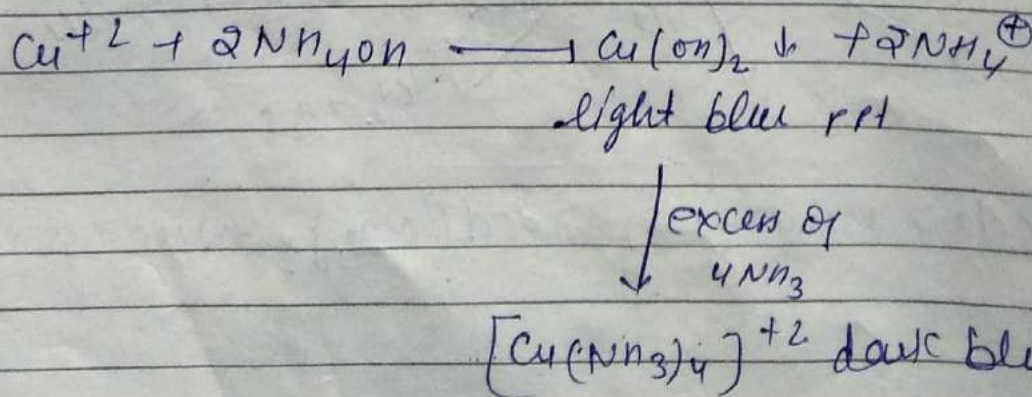 Cu+2 + 2Nn4on ⟶ Cu(on)2 ↓ + 2NH4⊕
light blue ppt
excess of
4Nn3
[Cu(Nn3)4]+2 dark blu